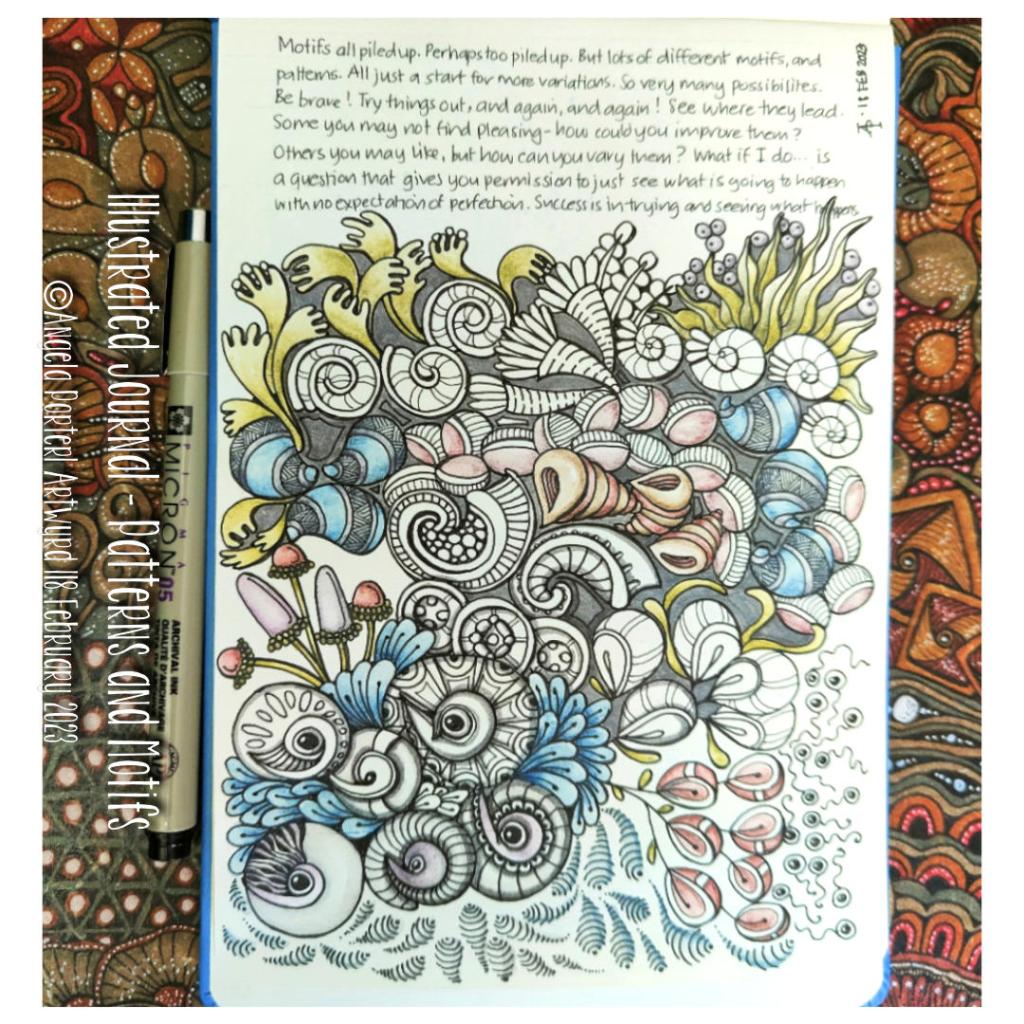 Motifs all piled up. Perhaps too piled up. But lots of different motifs, and
patterns. All just a start for more variations. So very many possibilites.
Be brave! Try things out, and again, and again! See where they lead.
Some you may not find pleasing - how could you improve them?
Others you may like, but how can you vary them? What if I do... is
a question that gives you permission to just see what is going to happen
with no expectation of perfection. Success is in trying and seeing what happens.
18 FEB 2023
Illustrated Journal - Patterns and Motifs
©Angela Porter | Artwyrd | 18 February 2023
SIGMA
MICRON 05
ARCHIVAL INK
QUALITÉ D'ARCHIVES